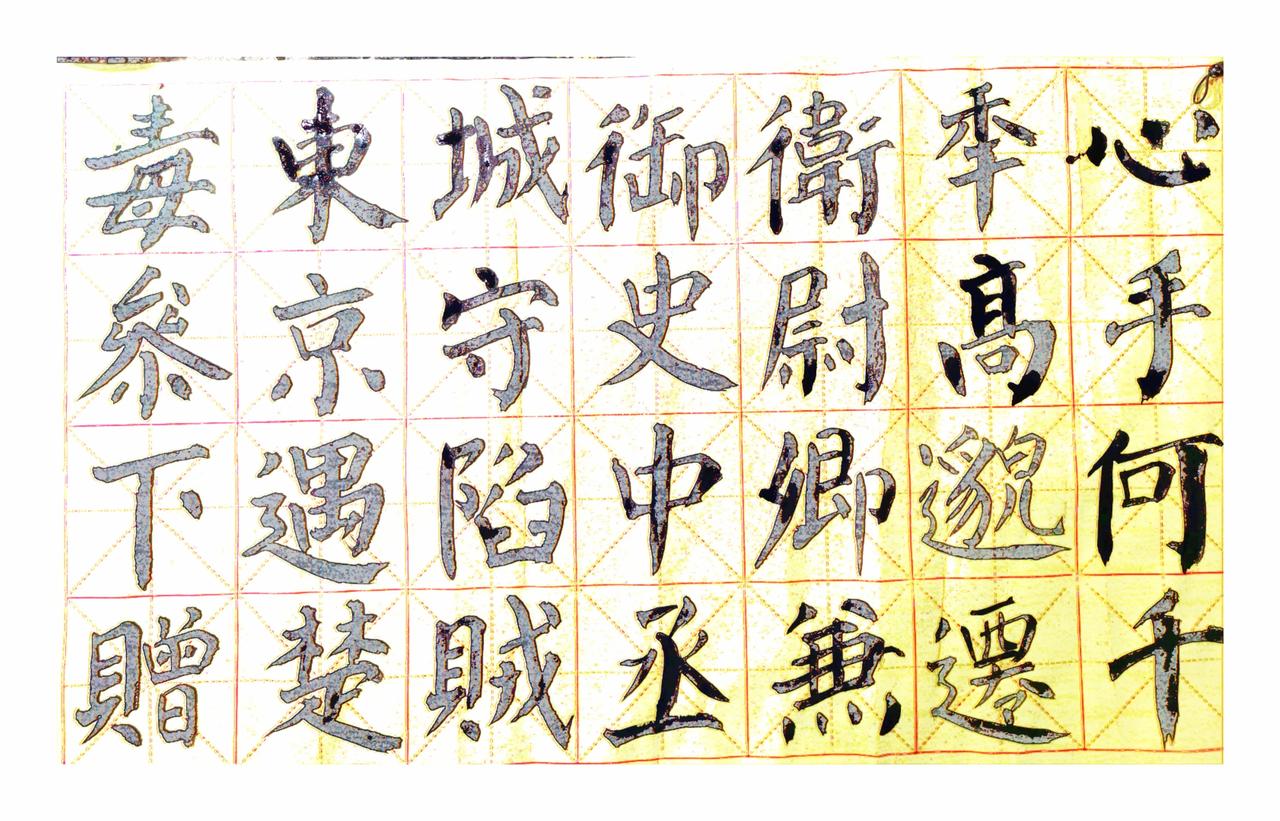 心手何千
秊髙邈遷
衛尉卿兼
御史中丞
城守陷賊
東京遇楚
毒參下贈